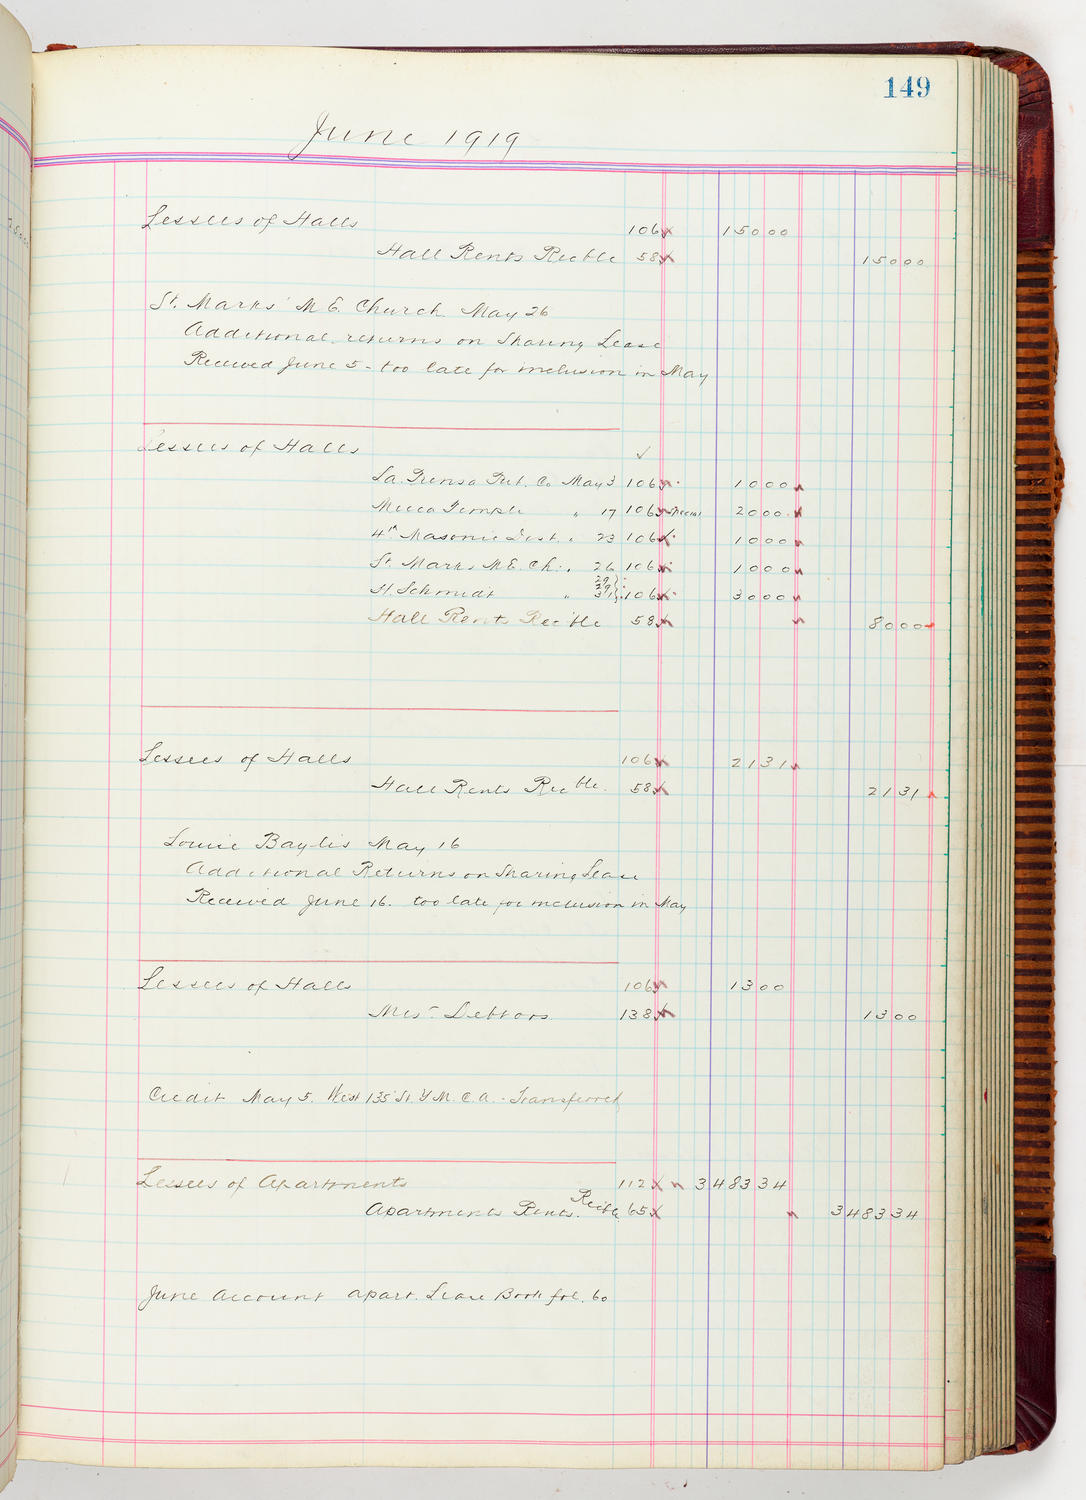 149
June 1919
Lessees of Halls 106 15000
Hall Rents Recble 58 15000
St. Marks' M E. Church May 26
Additional returns on Sharing Lease
Received June 5 - too late for inclusion in May
Lessees of Halls ✓
La Prensa Pub. Co May 3 106 1000
Mecca Temple " 17 106 2000
4th Masonic Dist. " 23 106 1000
St. Marks M E. Ch. " 26 106 1000
H. Schmidt " 29 31 106 3000
Hall Rents Recble 58 8000
Lessees of Halls 106 2131
Hall Rents Recble. 58 2131
Louise Baylis May 16
Additional Returns on Sharing Lease
Received June 16. too late for inclusion in May
Lessees of Halls 106 1300
Mis- Debtors 138 1300
Credit May 5. West 135 St. Y M. C. A. - Transferred
Lessees of Apartments 112 348334
Apartments Rents. Recble 65 348334
June Account Apart. Lease Book fol. 60